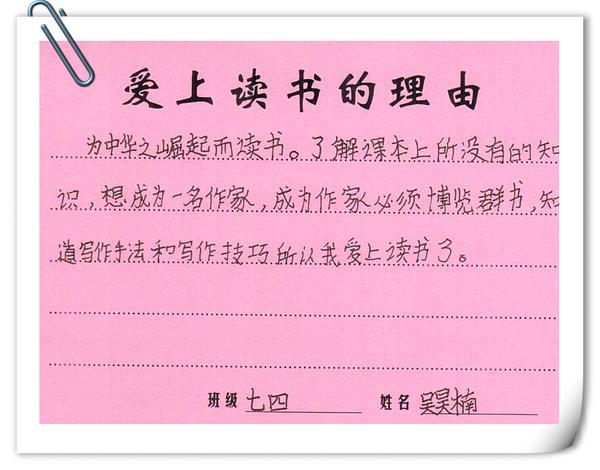 爱上读书的理由
为中华之崛起而读书。了解课本上所没有的知
识，想成为一名作家，成为作家必须博览群书，知
道写作手法和写作技巧所以我爱上读书了。
班级 七四 姓名 吴昊楠